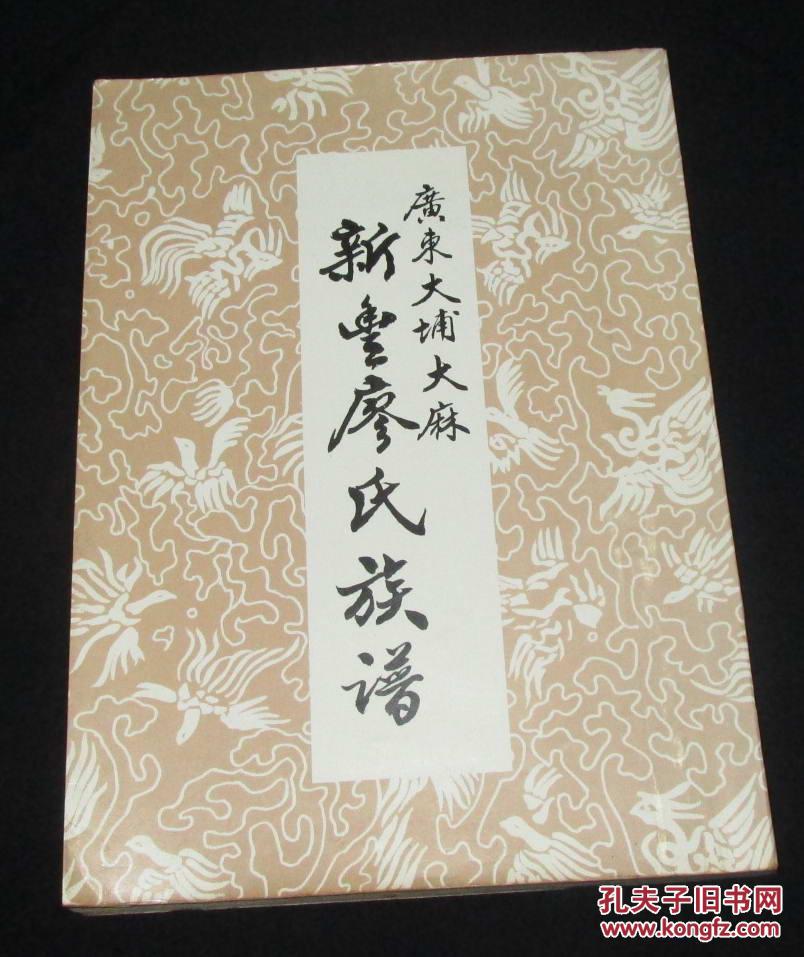 廣東大埔大麻
新豐廖氏族譜
孔夫子旧书网
www.kongfz.com